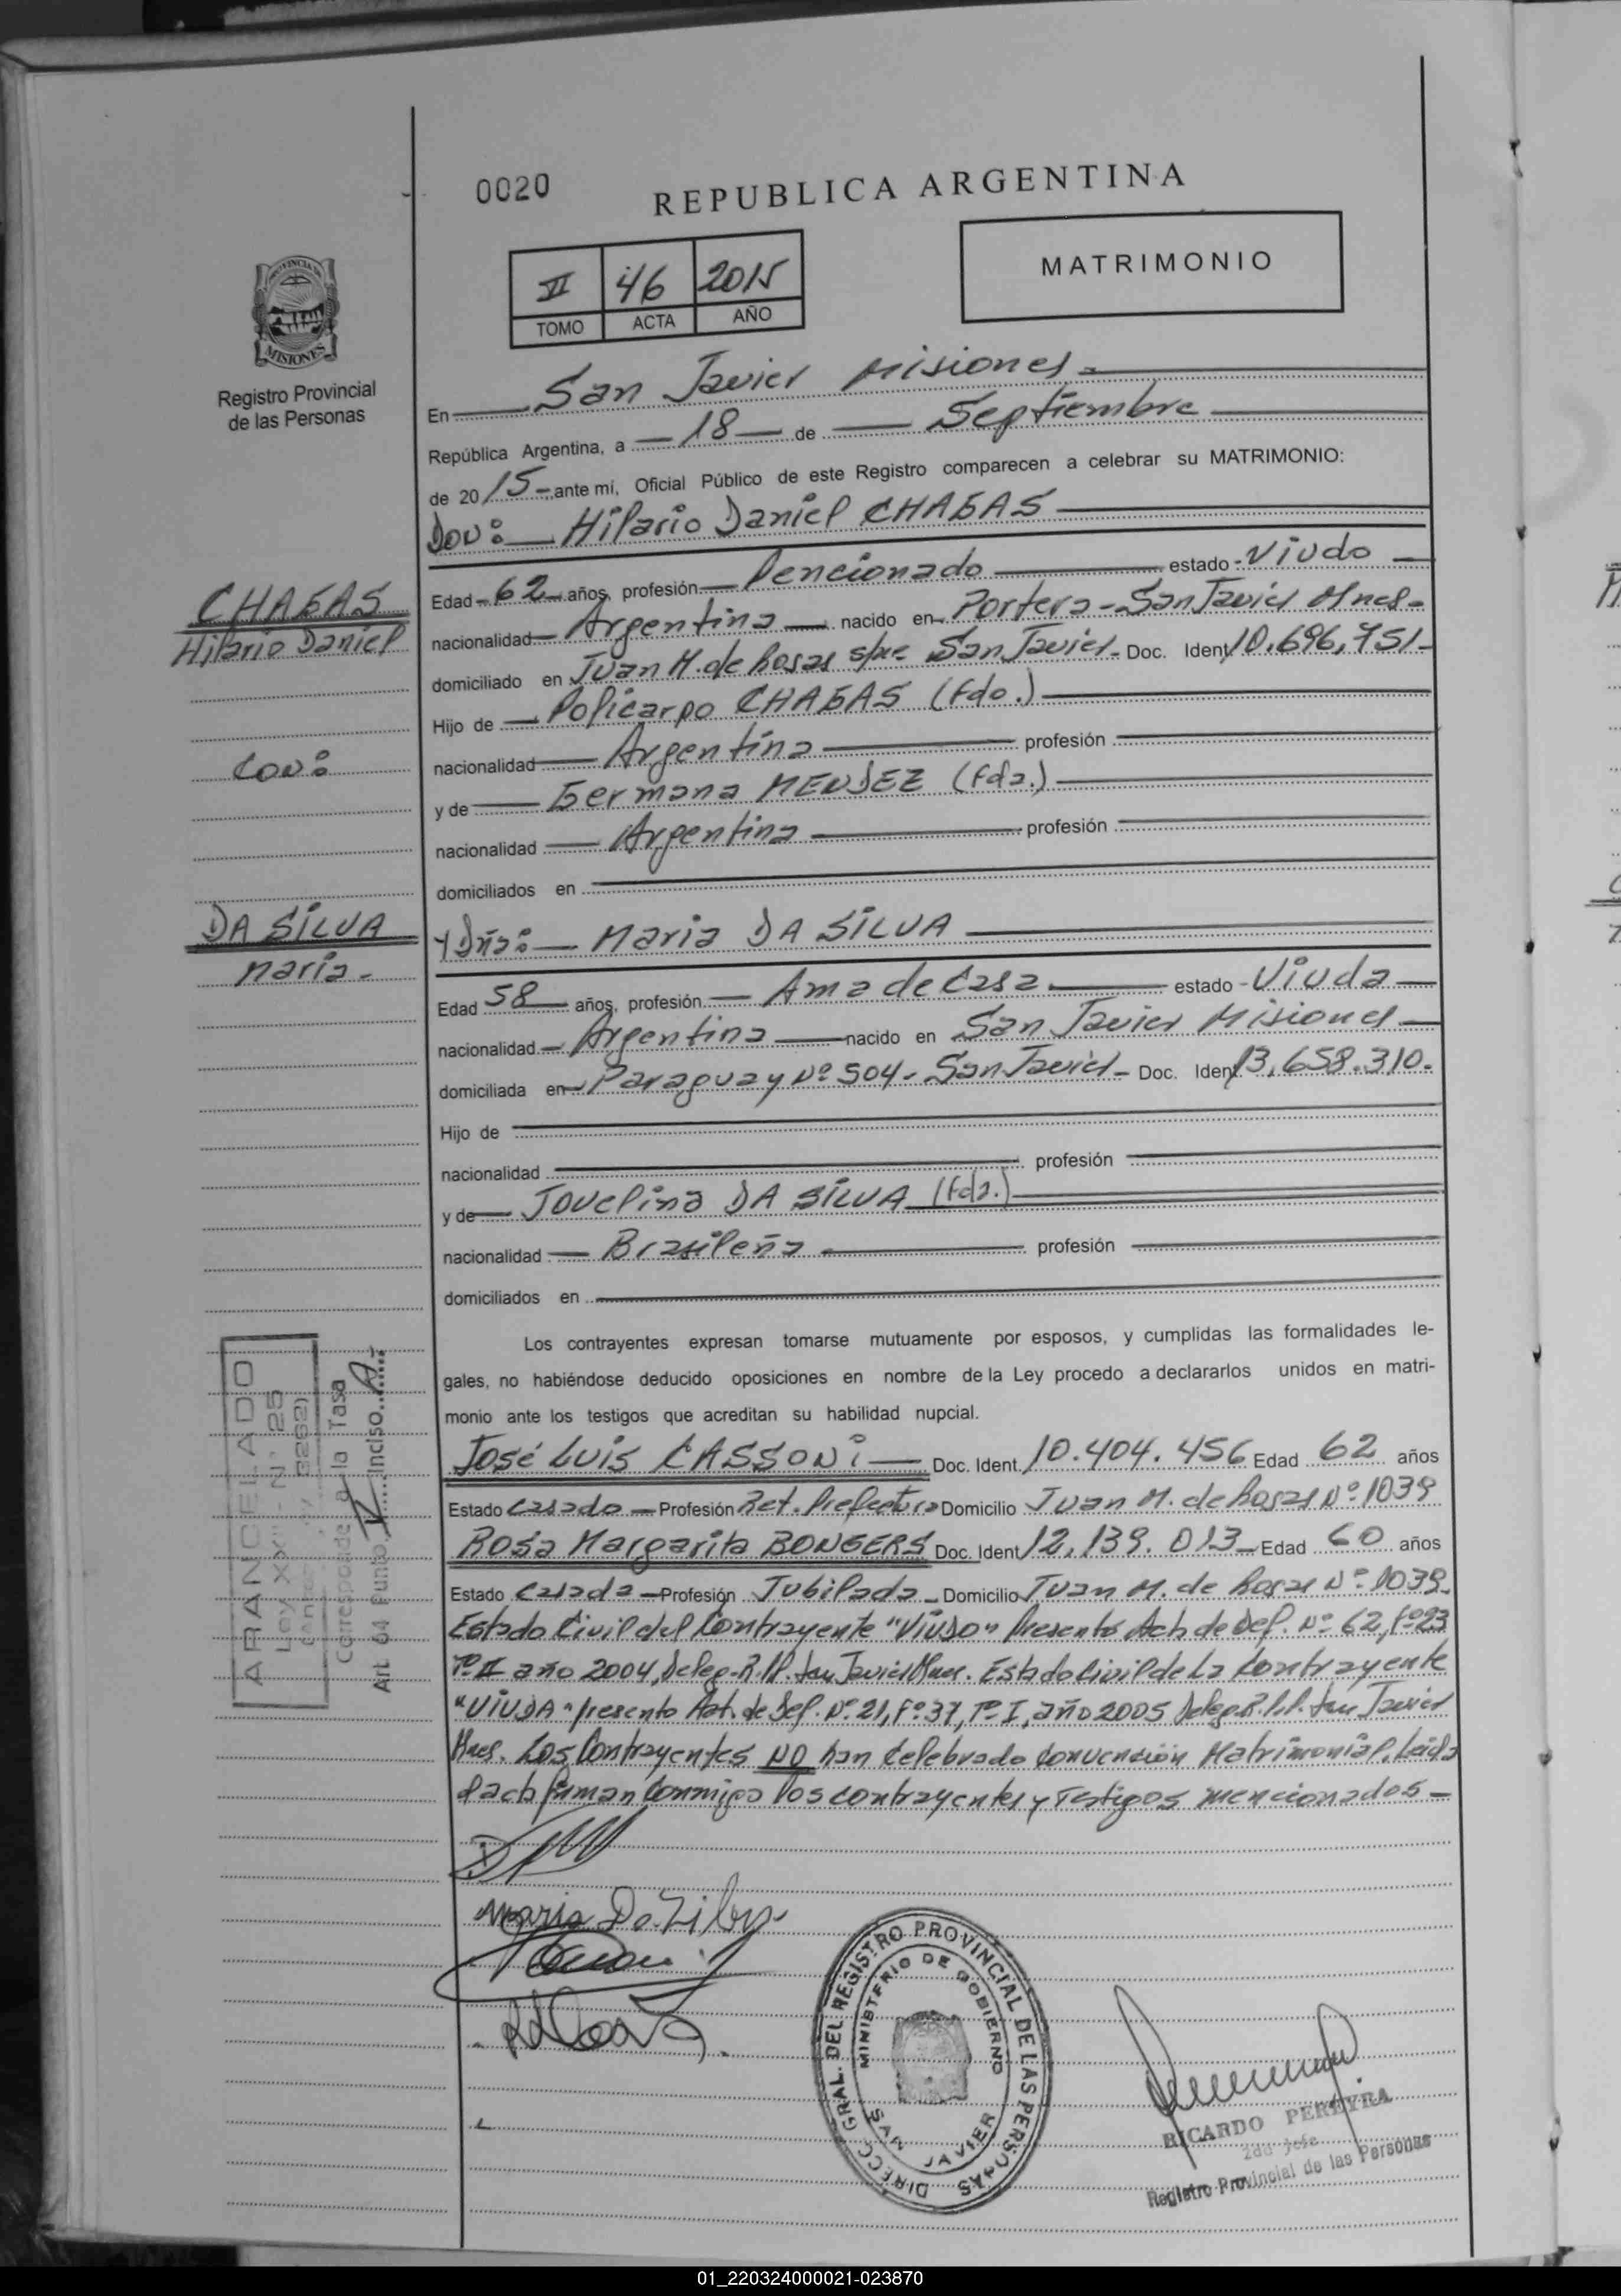 0020
REPUBLICA ARGENTINA
VI 46 2015
TOMO ACTA AÑO
MATRIMONIO
PROVINCIA DE
MISIONES
Registro Provincial
de las Personas
En San Javier Misiones
República Argentina, a 18 de Septiembre
de 2015 ante mí, Oficial Público de este Registro comparecen a celebrar su MATRIMONIO:
DON: Hilario Daniel CHAGAS
CHAGAS
Hilario Daniel
CON:
DA SILVA
Maria.
Edad 62 años, profesión Pencionado estado Viudo
nacionalidad Argentina nacido en Portera - San Javier Mnes.
domiciliado en Juan M. de Rosas s/nº San Javier Doc. Ident. 10.696.751
Hijo de Policarpo CHAGAS (Fdo.)
nacionalidad Argentina profesión
y de Germana MENDEZ (Fda.)
nacionalidad Argentina profesión
domiciliados en
Y Dña: Maria DA SILVA
Edad 58 años, profesión Ama de Casa estado Viuda
nacionalidad Argentina nacido en San Javier Misiones
domiciliada en Paraguay Nº 504 - San Javier Doc. Ident. 13.658.310.
Hijo de
nacionalidad profesión
y de Jovelina DA SILVA (Fda.)
nacionalidad Brasileña profesión
domiciliados en
Los contrayentes expresan tomarse mutuamente por esposos, y cumplidas las formalidades le-
gales, no habiéndose deducido oposiciones en nombre de la Ley procedo a declararlos unidos en matri-
monio ante los testigos que acreditan su habilidad nupcial.
José Luis CASSONi Doc. Ident. 10.404.456 Edad 62 años
Estado Casado Profesión Ret. Prefectura Domicilio Juan M. de Rosas Nº 1039
Rosa Margarita BONGERS Doc. Ident. 12.139.013 Edad 60 años
Estado Casada Profesión Jubilada Domicilio Juan M. de Rosas Nº 1039.
Estado Civil del Contrayente "VIUDO" Presento Acta de Def. Nº 62, Fº 23
Tº II año 2004, Deleg. R.P.P. San Javier Mnes. Estado Civil de La Contrayente
"VIUDA" presento Act. de Def. Nº 21, Fº 37, Tº I, año 2005 Deleg. R.P.P. San Javier
Mnes. Los Contrayentes NO han Celebrado Convención Matrimonial. Leida
el acta firman Conmigo los contrayentes y Testigos mencionados
ARANCELADO
Ley XXII - Nº 25
Corresponde a la Tasa
Art. 04 Punto Inciso A
Maria Da Silva
DIRECC. GRAL. DEL REGISTRO PROVINCIAL DE LAS PERSONAS
MINISTERIO DE GOBIERNO
SAN JAVIER
RICARDO PEREYRA
2do Jefe
Registro Provincial de las Personas
01_220324000021-023870